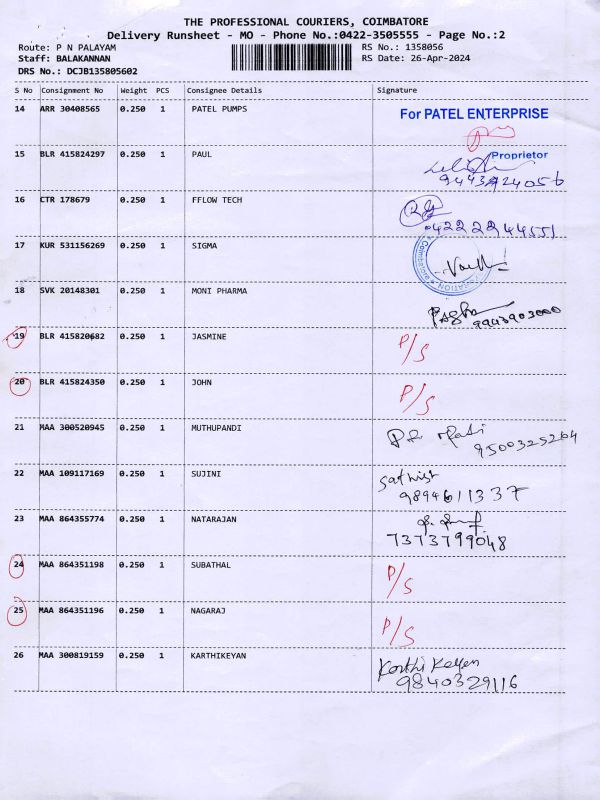 THE PROFESSIONAL COURIERS, COIMBATORE
Delivery Runsheet - MO - Phone No.:0422-3505555 - Page No.:2
Route: P N PALAYAM RS No.: 1358056
Staff: BALAKANNAN RS Date: 26-Apr-2024
DRS No.: DCJB135805602
S No Consignment No Weight PCS Consignee Details Signature
14 ARR 30408565 0.250 1 PATEL PUMPS For PATEL ENTERPRISE
Proprietor
15 BLR 415824297 0.250 1 PAUL
9443424056
16 CTR 178679 0.250 1 FFLOW TECH
04222244551
17 KUR 531156269 0.250 1 SIGMA
18 SVK 20148301 0.250 1 MONI PHARMA
9943903000
19 BLR 415820682 0.250 1 JASMINE P/S
20 BLR 415824350 0.250 1 JOHN P/S
21 MAA 300520945 0.250 1 MUTHUPANDI
9500325264
22 MAA 109117169 0.250 1 SUJINI Sathish
9894611337
23 MAA 864355774 0.250 1 NATARAJAN
7373799048
24 MAA 864351198 0.250 1 SUBATHAL P/S
25 MAA 864351196 0.250 1 NAGARAJ P/S
26 MAA 300819159 0.250 1 KARTHIKEYAN Karthi Keyen
9840329116